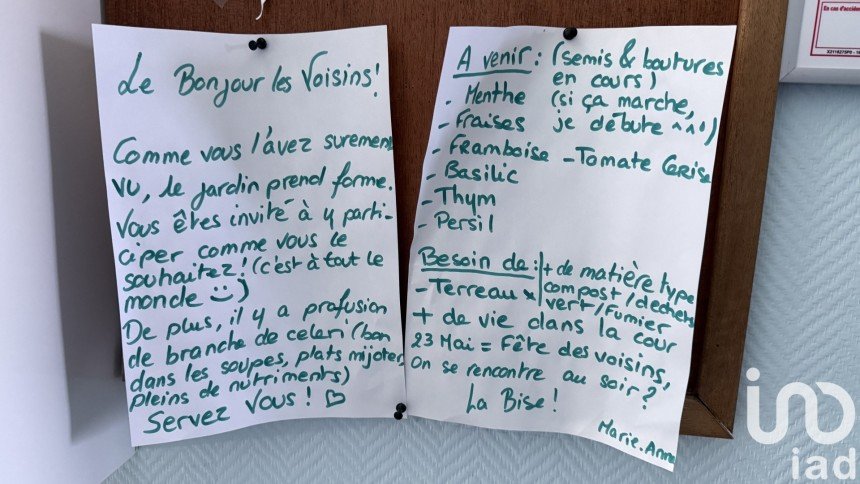 Le Bonjour les Voisins!
Comme vous l'avez surement
vu, le jardin prend forme.
Vous êtes invité à y parti-
ciper comme vous le
souhaitez! (c'est à tout le
monde :))
De plus, il y a profusion
de branche de celeri (bon
dans les soupes, plats mijotés,
pleins de nutriments)
Servez Vous! ♡
A venir : (semis & boutures
en cours)
- Menthe (si ça marche,
- Fraises je débute ^^')
- Framboise - Tomate Cerise
- Basilic
- Thym
- Persil
Besoin de : + de matière type
- Terreau x compost/dechets
vert/Fumier
+ de vie dans la cour
23 Mai = Fête des voisins,
On se rencontre au soir?
La Bise!
Marie-Anne
En cas d'accident
iad